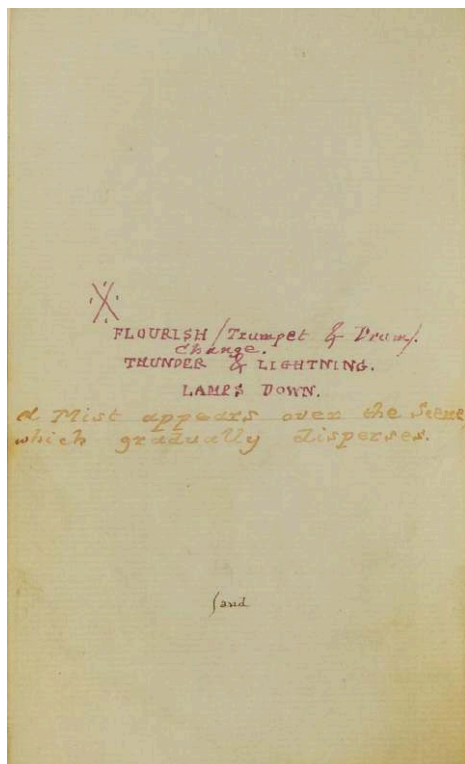 FLOURISH /Trumpet & Drum/.
Change.
THUNDER & LIGHTNING.
LAMPS DOWN.
A Mist appears over the Scene
which gradually disperses.